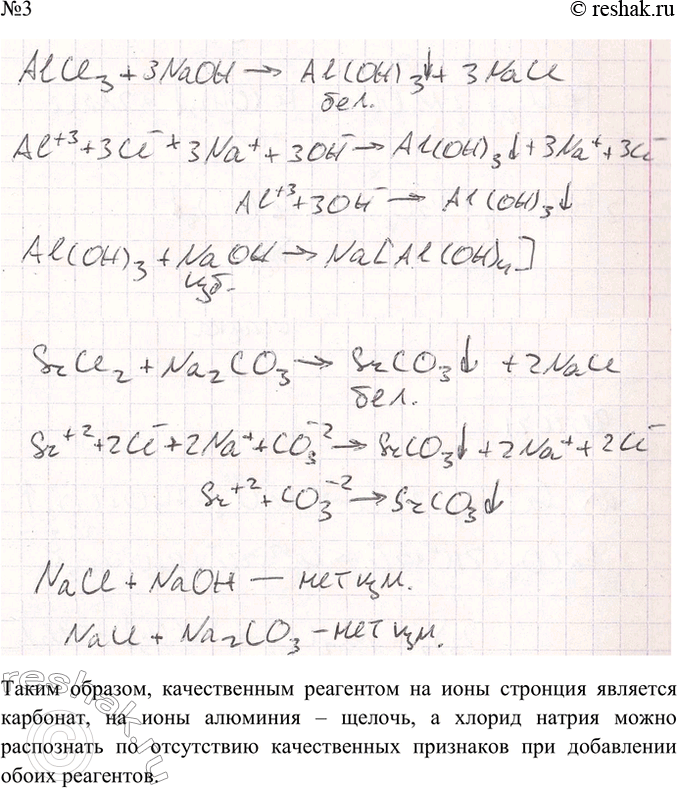 №3
© reshak.ru
AlCl₃ + 3NaOH → Al(OH)₃↓ + 3NaCl
бел.
Al⁺³ + 3Cl⁻ + 3Na⁺ + 3OH⁻ → Al(OH)₃↓ + 3Na⁺ + 3Cl⁻
Al⁺³ + 3OH⁻ → Al(OH)₃↓
Al(OH)₃ + NaOH → Na[Al(OH)₄]
изб.
SrCl₂ + Na₂CO₃ → SrCO₃↓ + 2NaCl
бел.
Sr⁺² + 2Cl⁻ + 2Na⁺ + CO₃⁻² → SrCO₃↓ + 2Na⁺ + 2Cl⁻
Sr⁺² + CO₃⁻² → SrCO₃↓
NaCl + NaOH — нет изм.
NaCl + Na₂CO₃ – нет изм.
Таким образом, качественным реагентом на ионы стронция является
карбонат, на ионы алюминия – щелочь, а хлорид натрия можно
распознать по отсутствию качественных признаков при добавлении
обоих реагентов.
reshak.ru